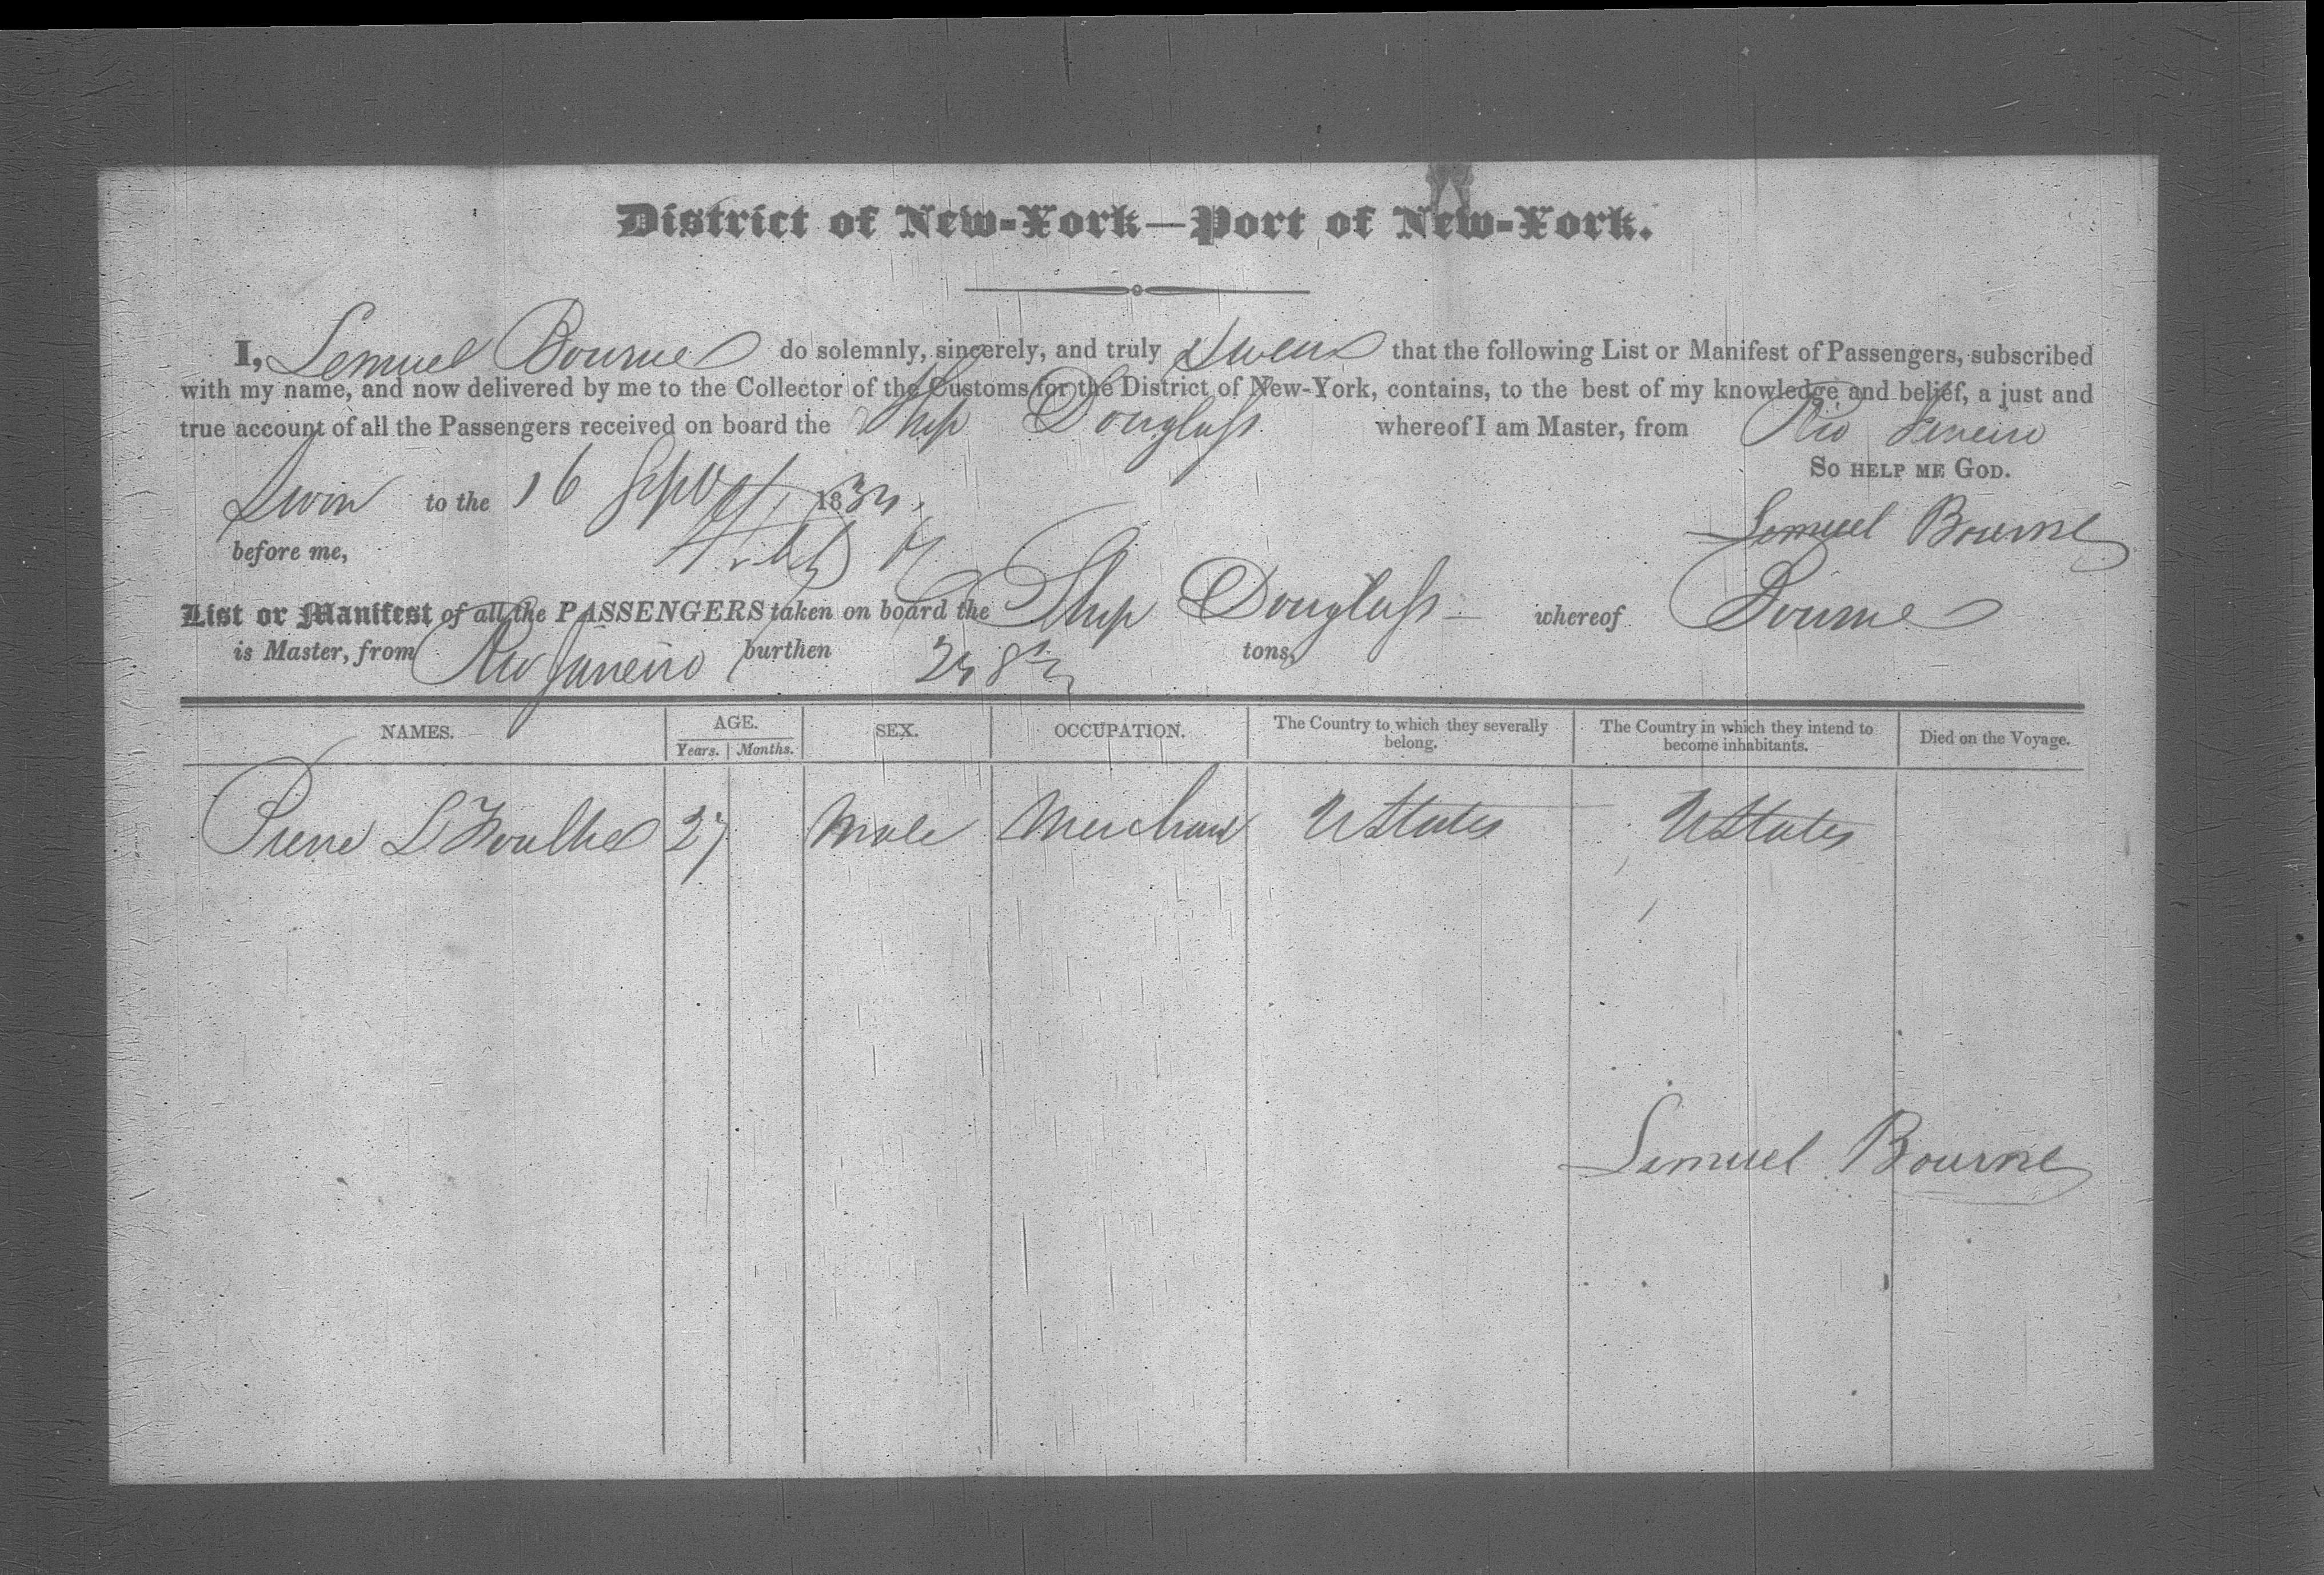 District of New-York—Port of New-York.
I, Lemuel Bourne do solemnly, sincerely, and truly Swear that the following List or Manifest of Passengers, subscribed
with my name, and now delivered by me to the Collector of the Customs for the District of New-York, contains, to the best of my knowledge and belief, a just and
true account of all the Passengers received on board the Ship Douglass whereof I am Master, from Rio Janeiro
So help me God.
Sworn to the 16 Sept 1834.
Lemuel Bourne
before me,
List or Manifest of all the PASSENGERS taken on board the Ship Douglass — whereof Bourne
is Master, from Rio Janeiro burthen tons,
NAMES. AGE. SEX. OCCUPATION. The Country to which they severally belong. The Country in which they intend to become inhabitants. Died on the Voyage.
Years. Months.
Pierre L 27 Male Merchant UStates UStates
Lemuel Bourne